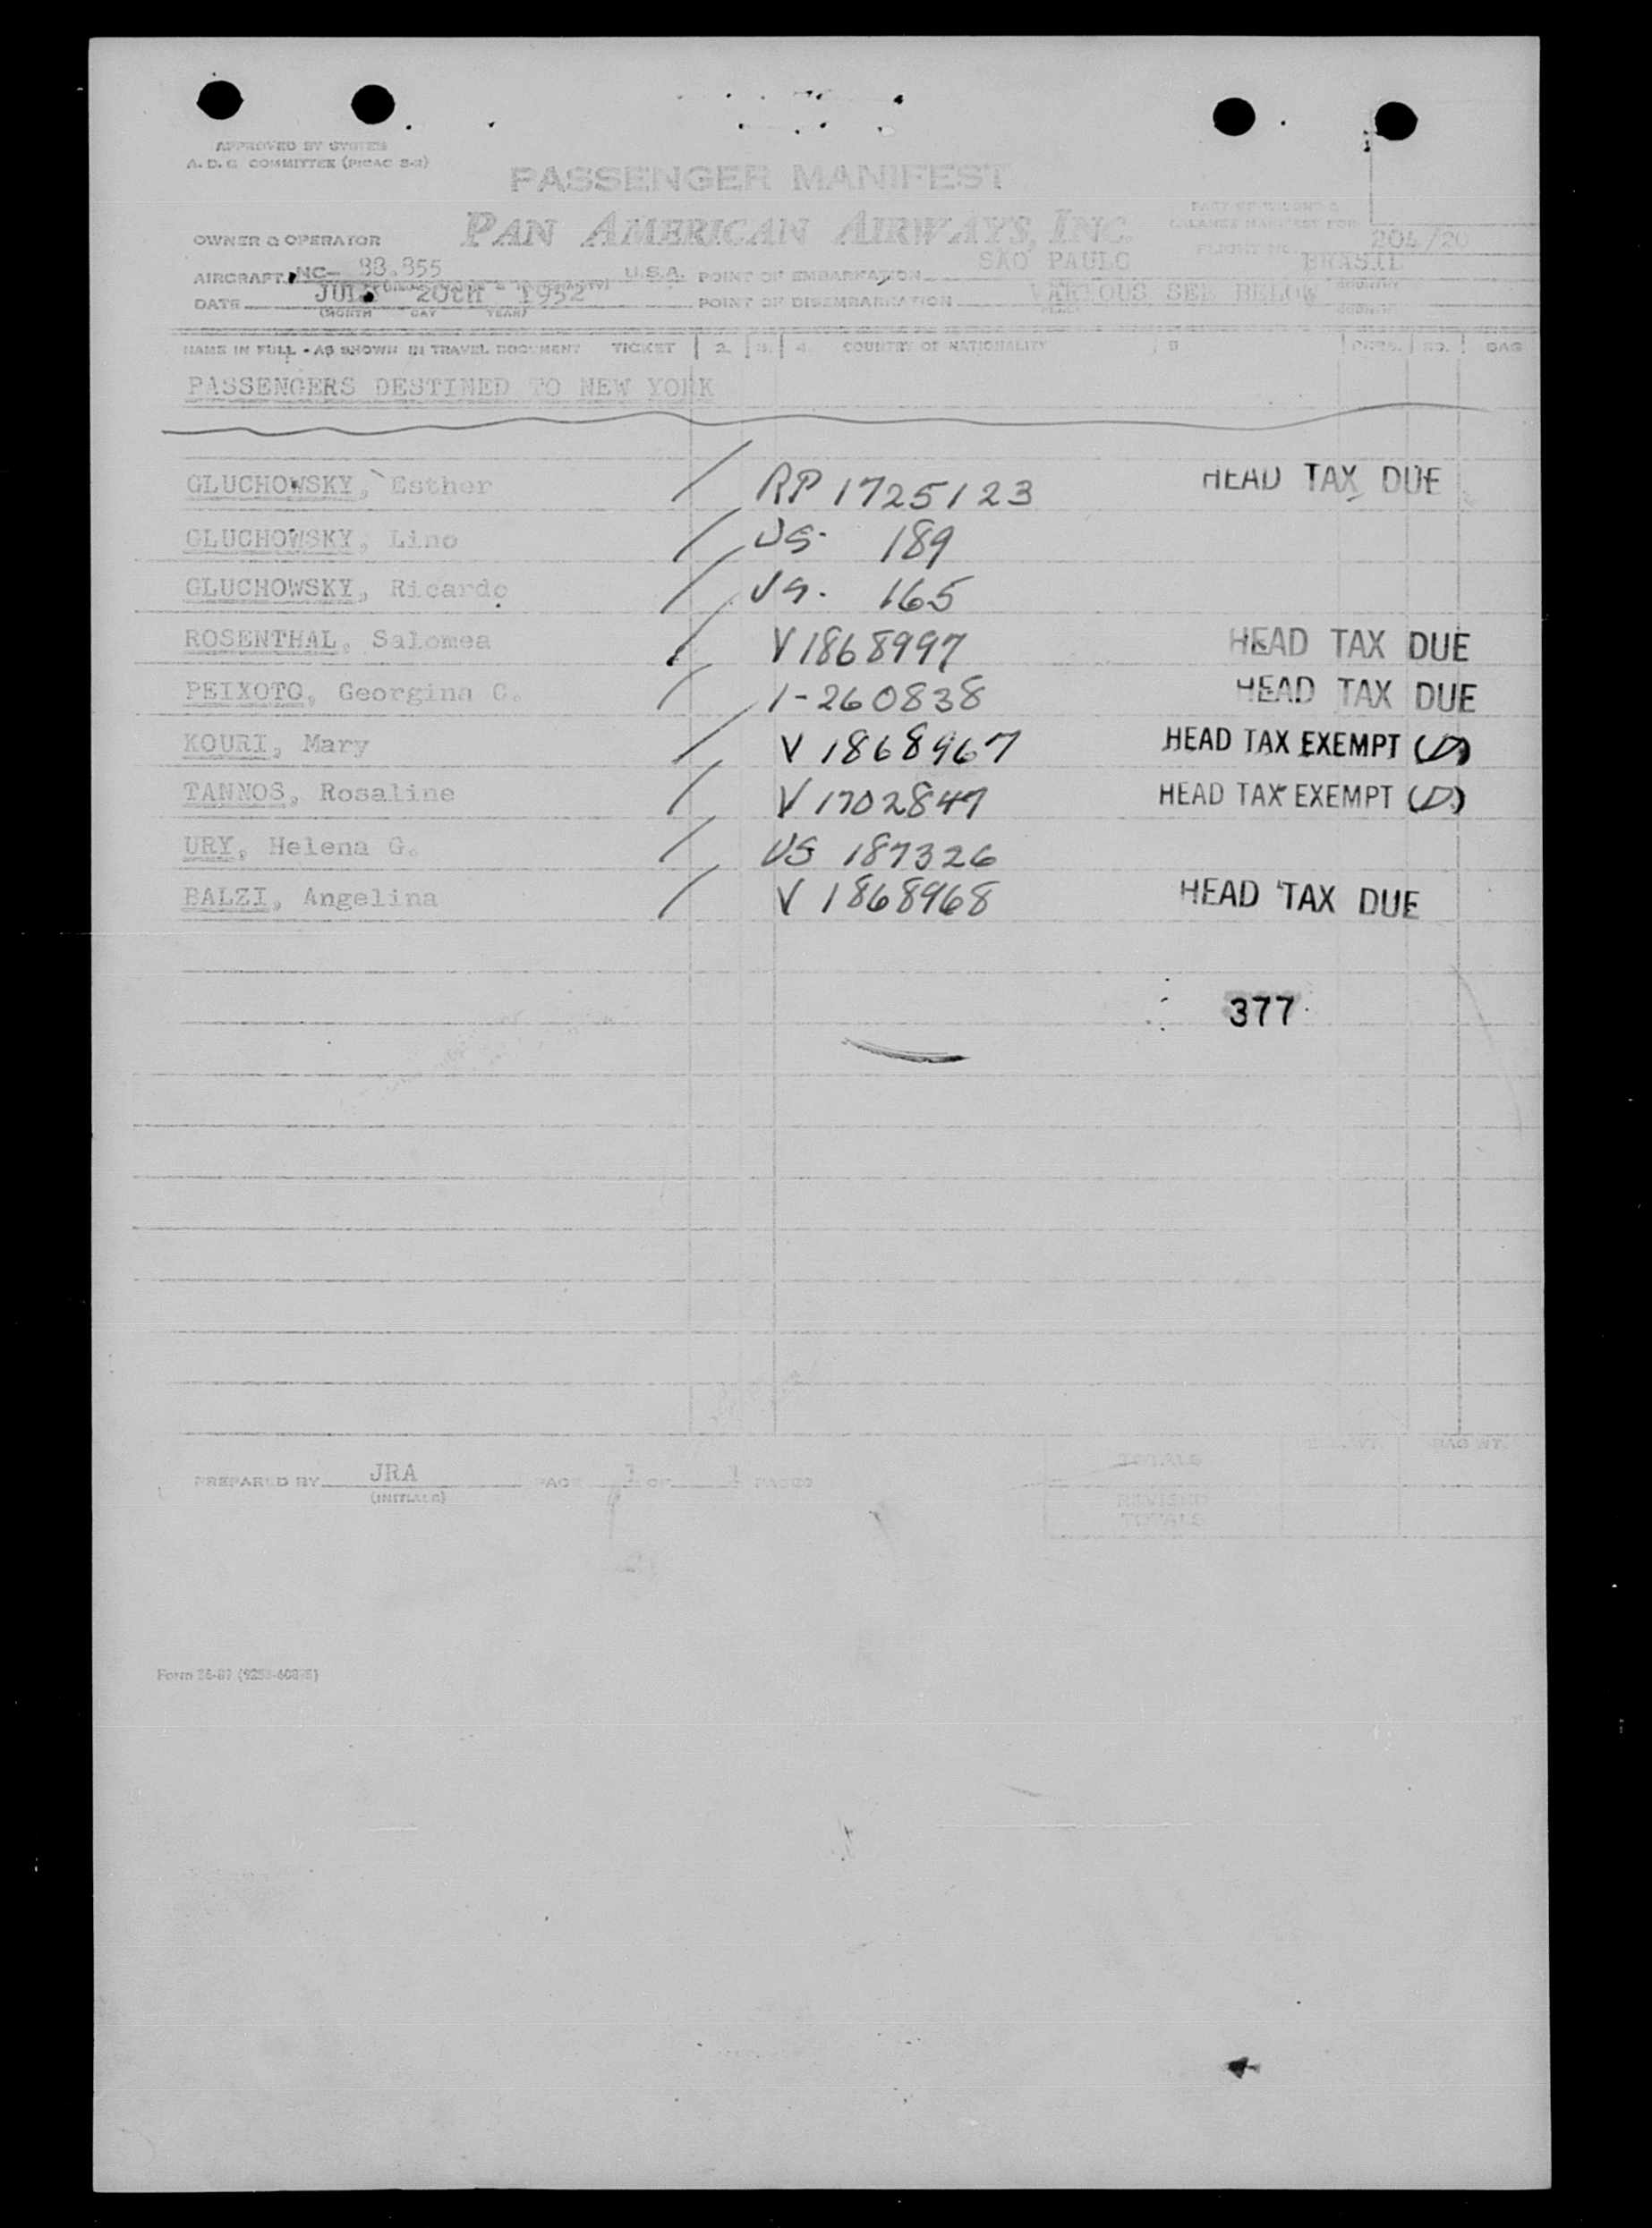 APPROVED BY SYSTEM
A. D. & COMMITTEE (PICAC S-2)
PASSENGER MANIFEST
PAN AMERICAN AIRWAYS, INC.
OWNER & OPERATOR
PART OF WEIGHT &
BALANCE MANIFEST FOR
FLIGHT NO. 204/20
AIRCRAFT NC- 88.855 U.S.A. POINT OF EMBARKATION SAO PAULO BRASIL
DATE JULY 20th 1952 POINT OF DISEMBARKATION VARIOUS SEE BELOW
(MONTH DAY YEAR) PLACE COUNTRY
NAME IN FULL - AS SHOWN IN TRAVEL DOCUMENT TICKET 2. 3. 4. COUNTRY OF NATIONALITY BAG
PASSENGERS DESTINED TO NEW YORK
GLUCHOWSKY, Esther / RP 1725123 HEAD TAX DUE
GLUCHOWSKY, Lino / US. 189
GLUCHOWSKY, Ricardo / US. 165
ROSENTHAL, Salomea / V 1868997 HEAD TAX DUE
PEIXOTO, Georgina C. / 1-260838 HEAD TAX DUE
KOURI, Mary / V 1868967 HEAD TAX EXEMPT (D)
TANNOS, Rosaline / V 1702847 HEAD TAX EXEMPT (D)
URY, Helena G. / US 187326
BALZI, Angelina / V 1868968 HEAD TAX DUE
377
TOTALS BAG WT.
PREPARED BY JRA PAGE 1 OF 1 PAGES
(INITIALS)
REVISED
TOTALS